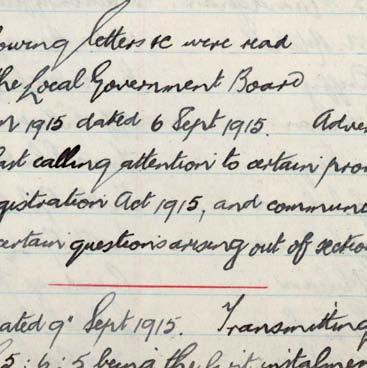 owing letters &c were read
the Local Government Board
n 1915 dated 6 Sept 1915. Adver
last calling attention to certain prov
gistration Act 1915, and commun
certain questions arising out of sectio
ated 9th Sept 1915. Transmitting
5 : 6 : 5 being the first instalmen